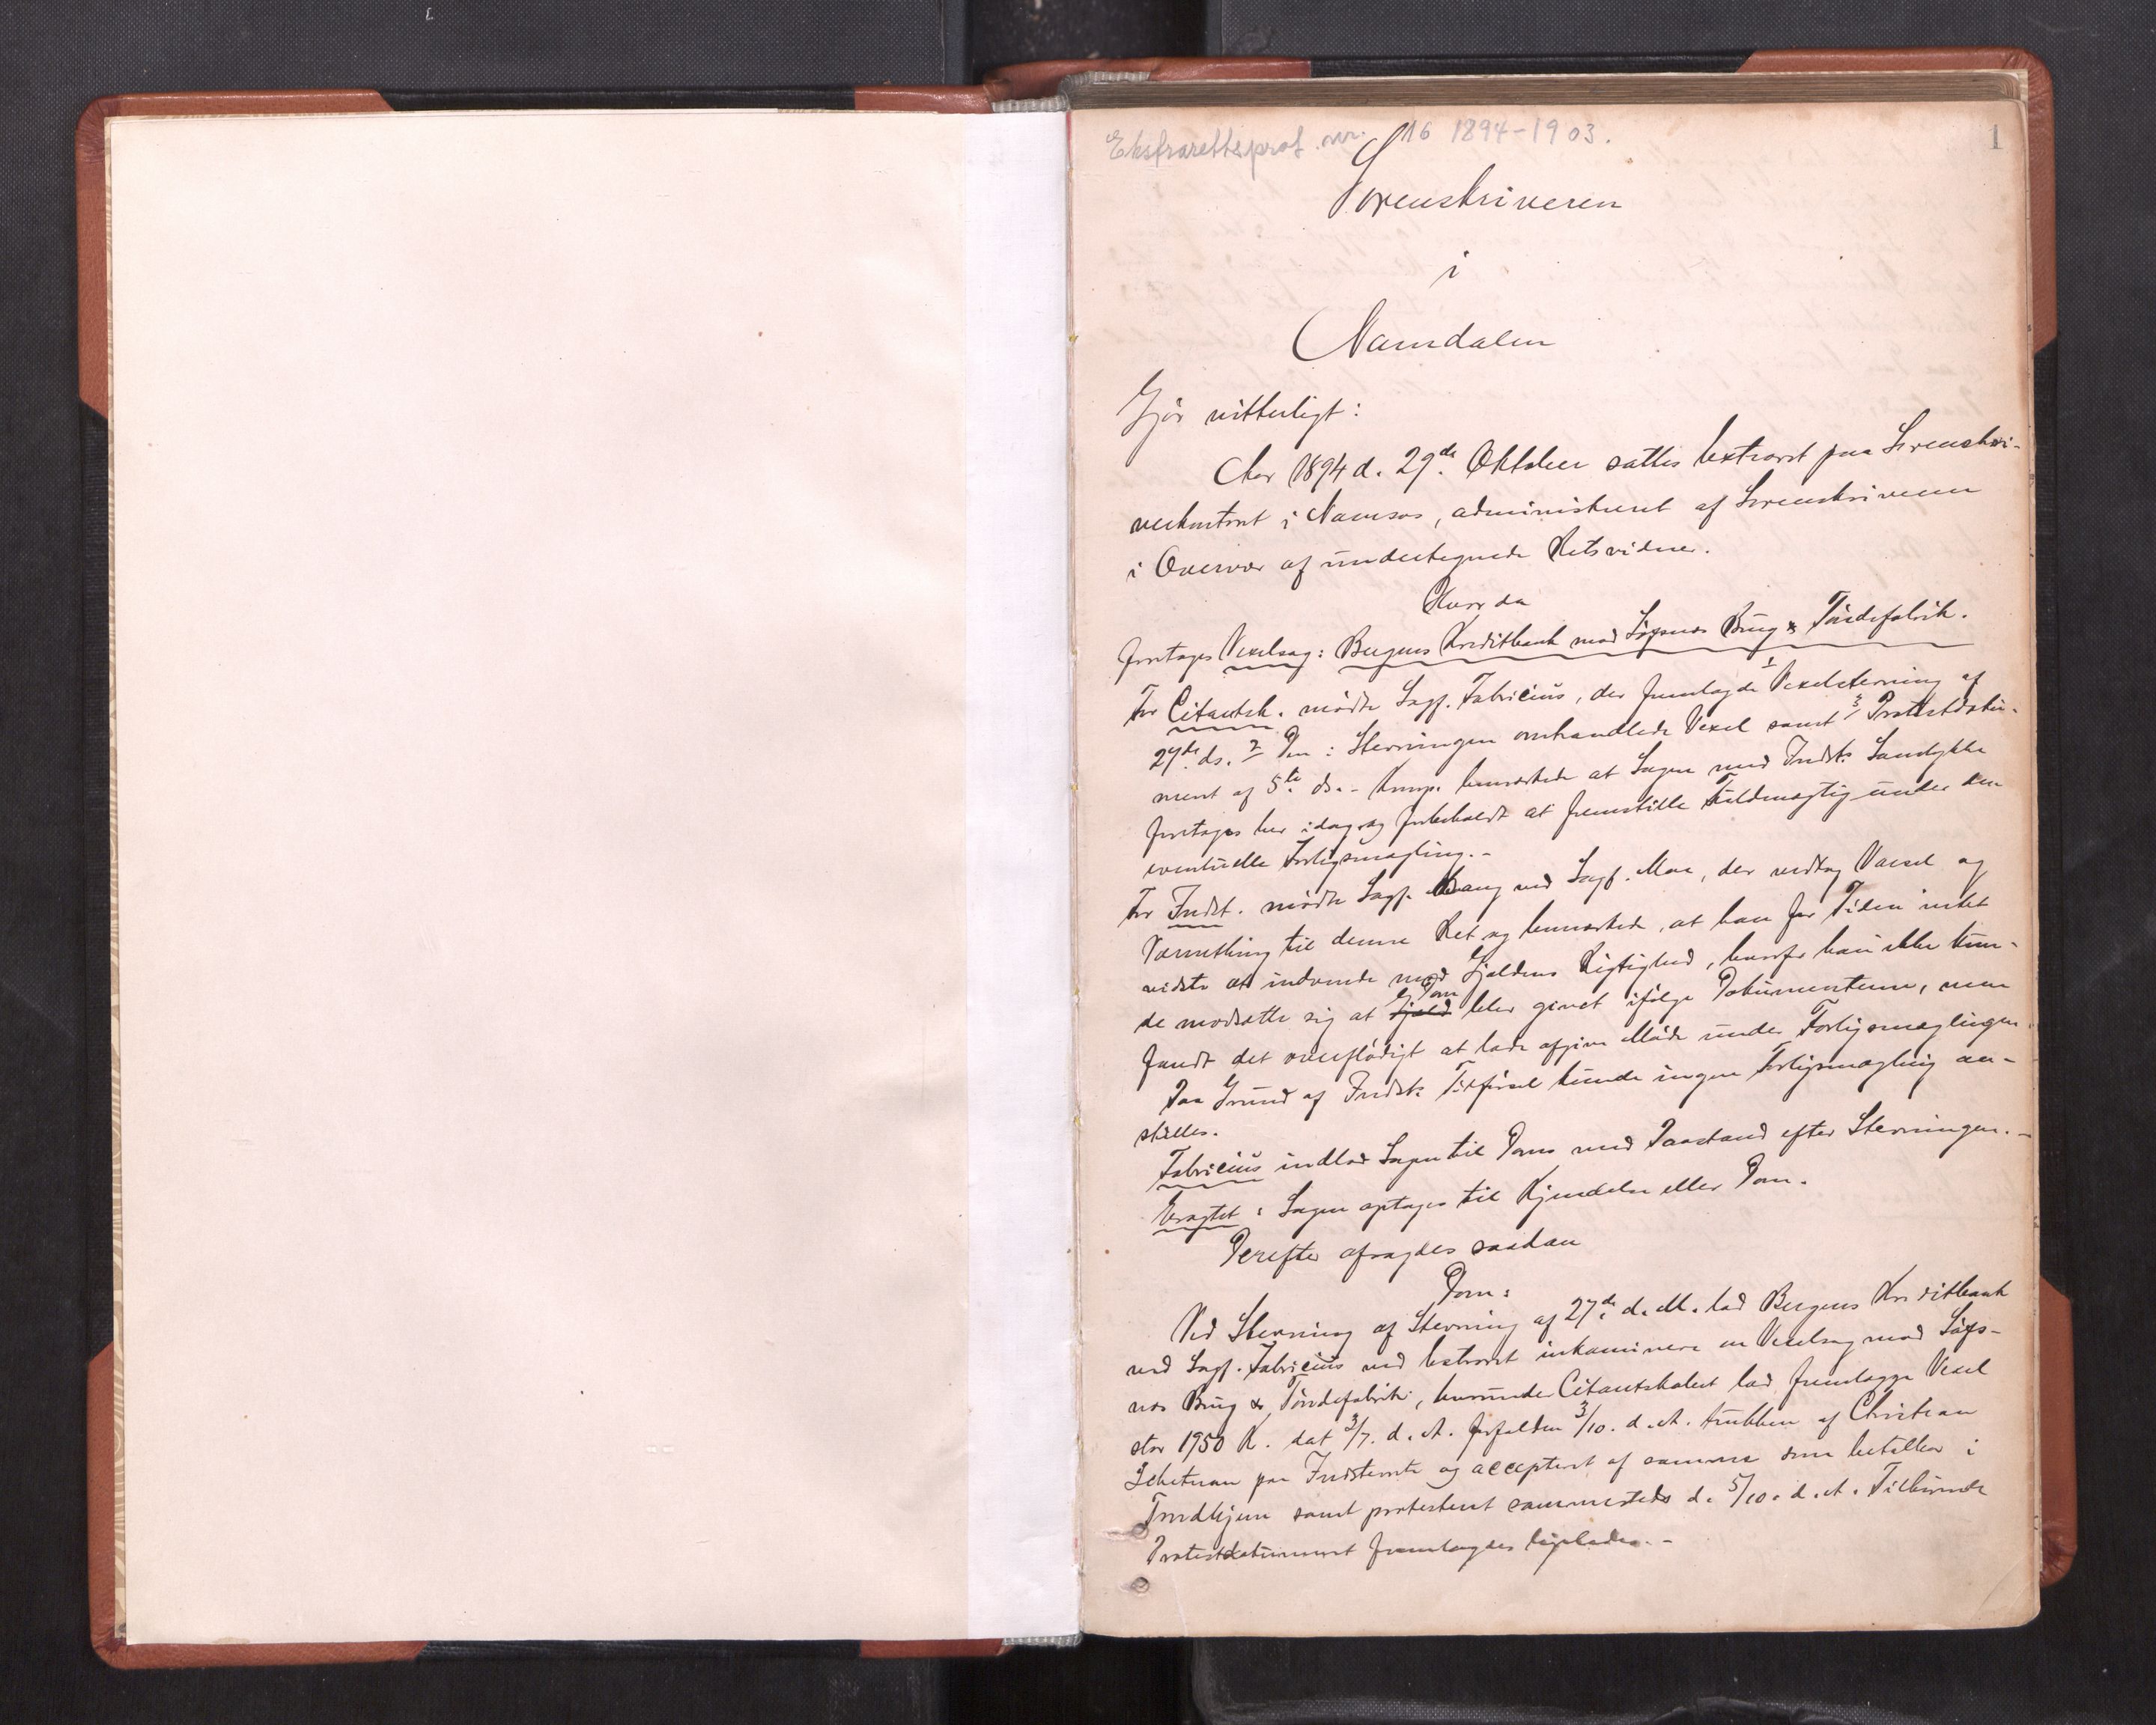 Ekstraretteprot. nr. 16 1894-1903.
1
Sorenskriveren
i
Namdalen
Gjør vitterligt:
Aar 1894 d. 29de Oktober sattes Extraret paa Sorenskri-
verkontoret i Namsos, administreret af Sorenskriveren
i Overvær af undertegnede Retsvidner.
Hvorda
foretoges Vexelsag: Bergens Kreditbank mod Søgnæs Brug & Tøndefabrik.
For Citantsk. mødte Sagf. Fabricius, der fremlagde 1 Vexelstevning af
27de ds. 2 Den i Stevningen omhandlede Vexel samt 3 Protestdoku-
ment af 5te ds. - Komp. bemærkede at Sagen med Indst. Samtykke
foretages her idag og forbeholdt at fremstille Fuldmægtig under den
eventuelle Forligsmægling. -
For Indst. mødte Sagf. Haug ved Sagf. Moe, der vedtog Varsel og
Værnething til denne Ret og bemærkede, at han for Tiden intet
vidste at indvende mod Gjældens Rigtighed, hvorfor han ikke kun-
de modsætte sig at Dom blev givet ifølge Dokumenterne, men
fandt det overflødigt at lade afgive Møde under Forligsmæglingen.
Paa Grund af Indst. Tilførsel kunde ingen Forligsmægling an-
stilles.
Fabricius indlod Sagen til Doms med Paastand efter Stevningen. -
Eragtet: Sagen optages til Kjendelse eller Dom.
Derefter afsagdes saadan
Dom:
Ved Stevning af Stevning af 27de d. M. lod Bergens Kreditbank
ved Sagf. Fabricius ved Extraret inkaminere en Vexelsag mod Søgs-
næs Brug & Tøndefabrik, hvorunder Citantskabet lod fremlægge Vexel
stor 1950 K. dat 3/7. d. A. forfalden 3/10. d. A. trukken af Christian
paa Indstevnte og accepteret af samme som betalbar i
Trondhjem samt protesteret sammesteds d. 5/10. d. A. Tilhørende
Protestdokument fremlagdes ligeledes. -